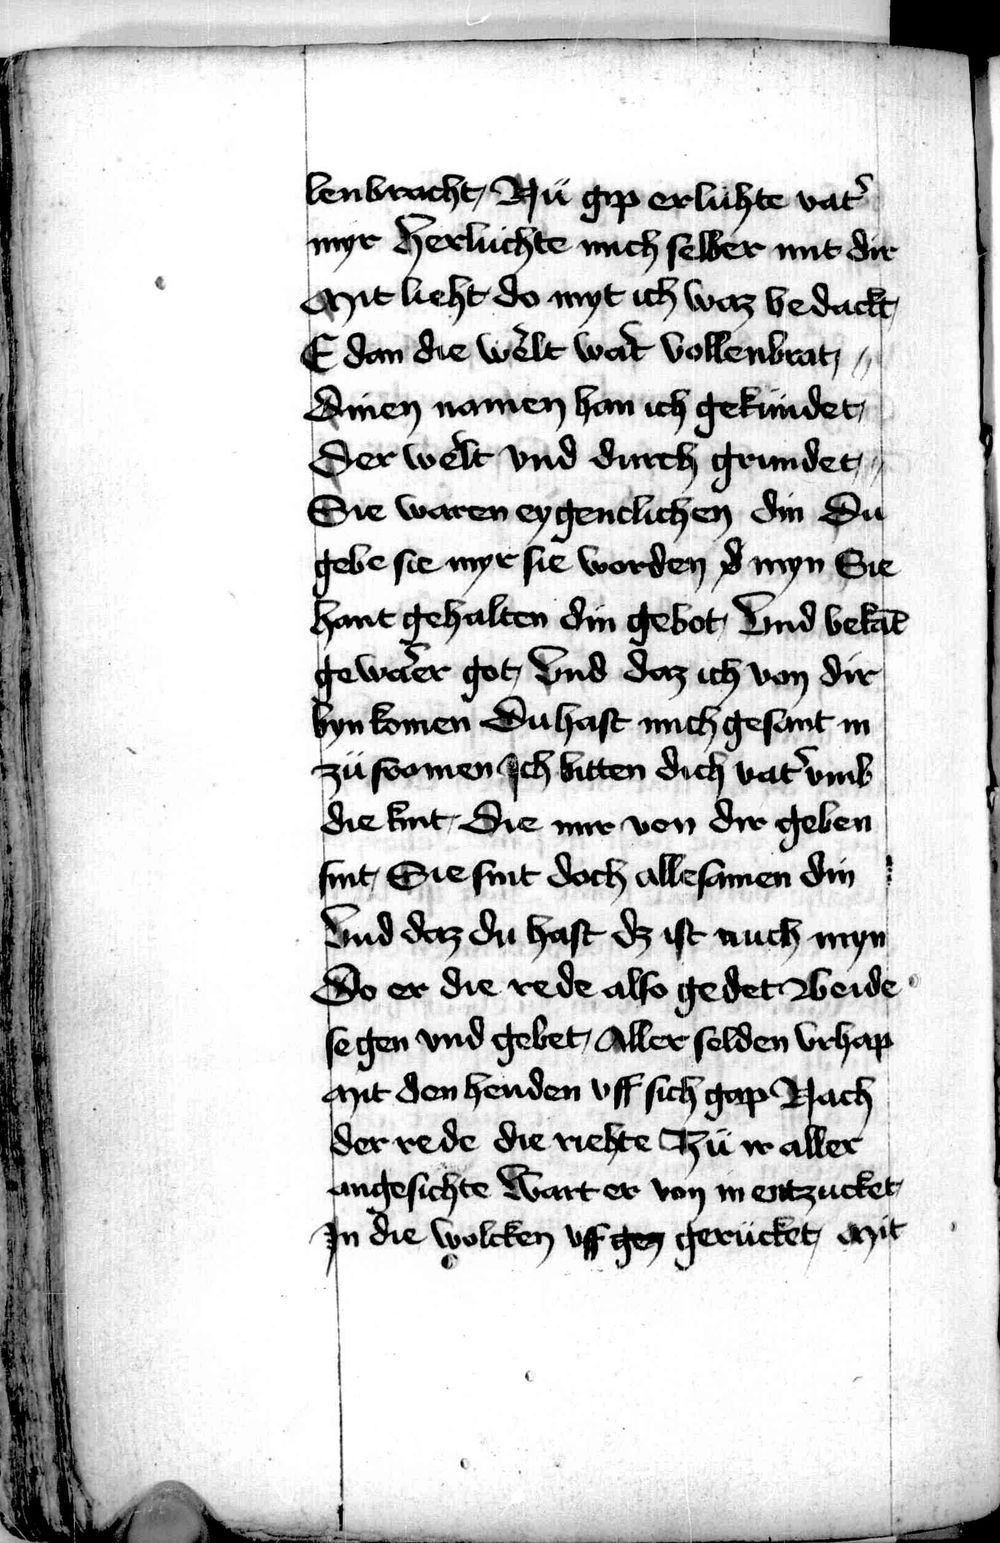 lenbracht, Nü gip erluhte vat̾
myr Herluchte mich selber mit dir
Mit lieht do myt ich waz bedackt,
E dan die we̾lt wa̾t vollenbrat, //
Dinen namen han ich gekündet,
Der we̾lt vnd durch grundet, //
Sie waren eygenclichen din Du
gebe sie myr sie worden myn Sie
hant gehalten din gebot, Vnd bekāt
gewa̾er got, Vnd daz ich von dir
byn komen Du hast mich gesant in
zü fromen Ich bitten dich vat̾ vmb
die kint, Die mir von dir geben
sint, Sie sint doch allesamen din
Vnd daz du hast dz ist auch myn
Do er die rede also gedet Beide
segen vnd gebet, Aller selden vrhap
Mit den henden vff sich gap Nach
der rede die riehte Zü ir aller
angesichte Wart er von in entzucket,
In die wolcken vff gen gerücket, Mit